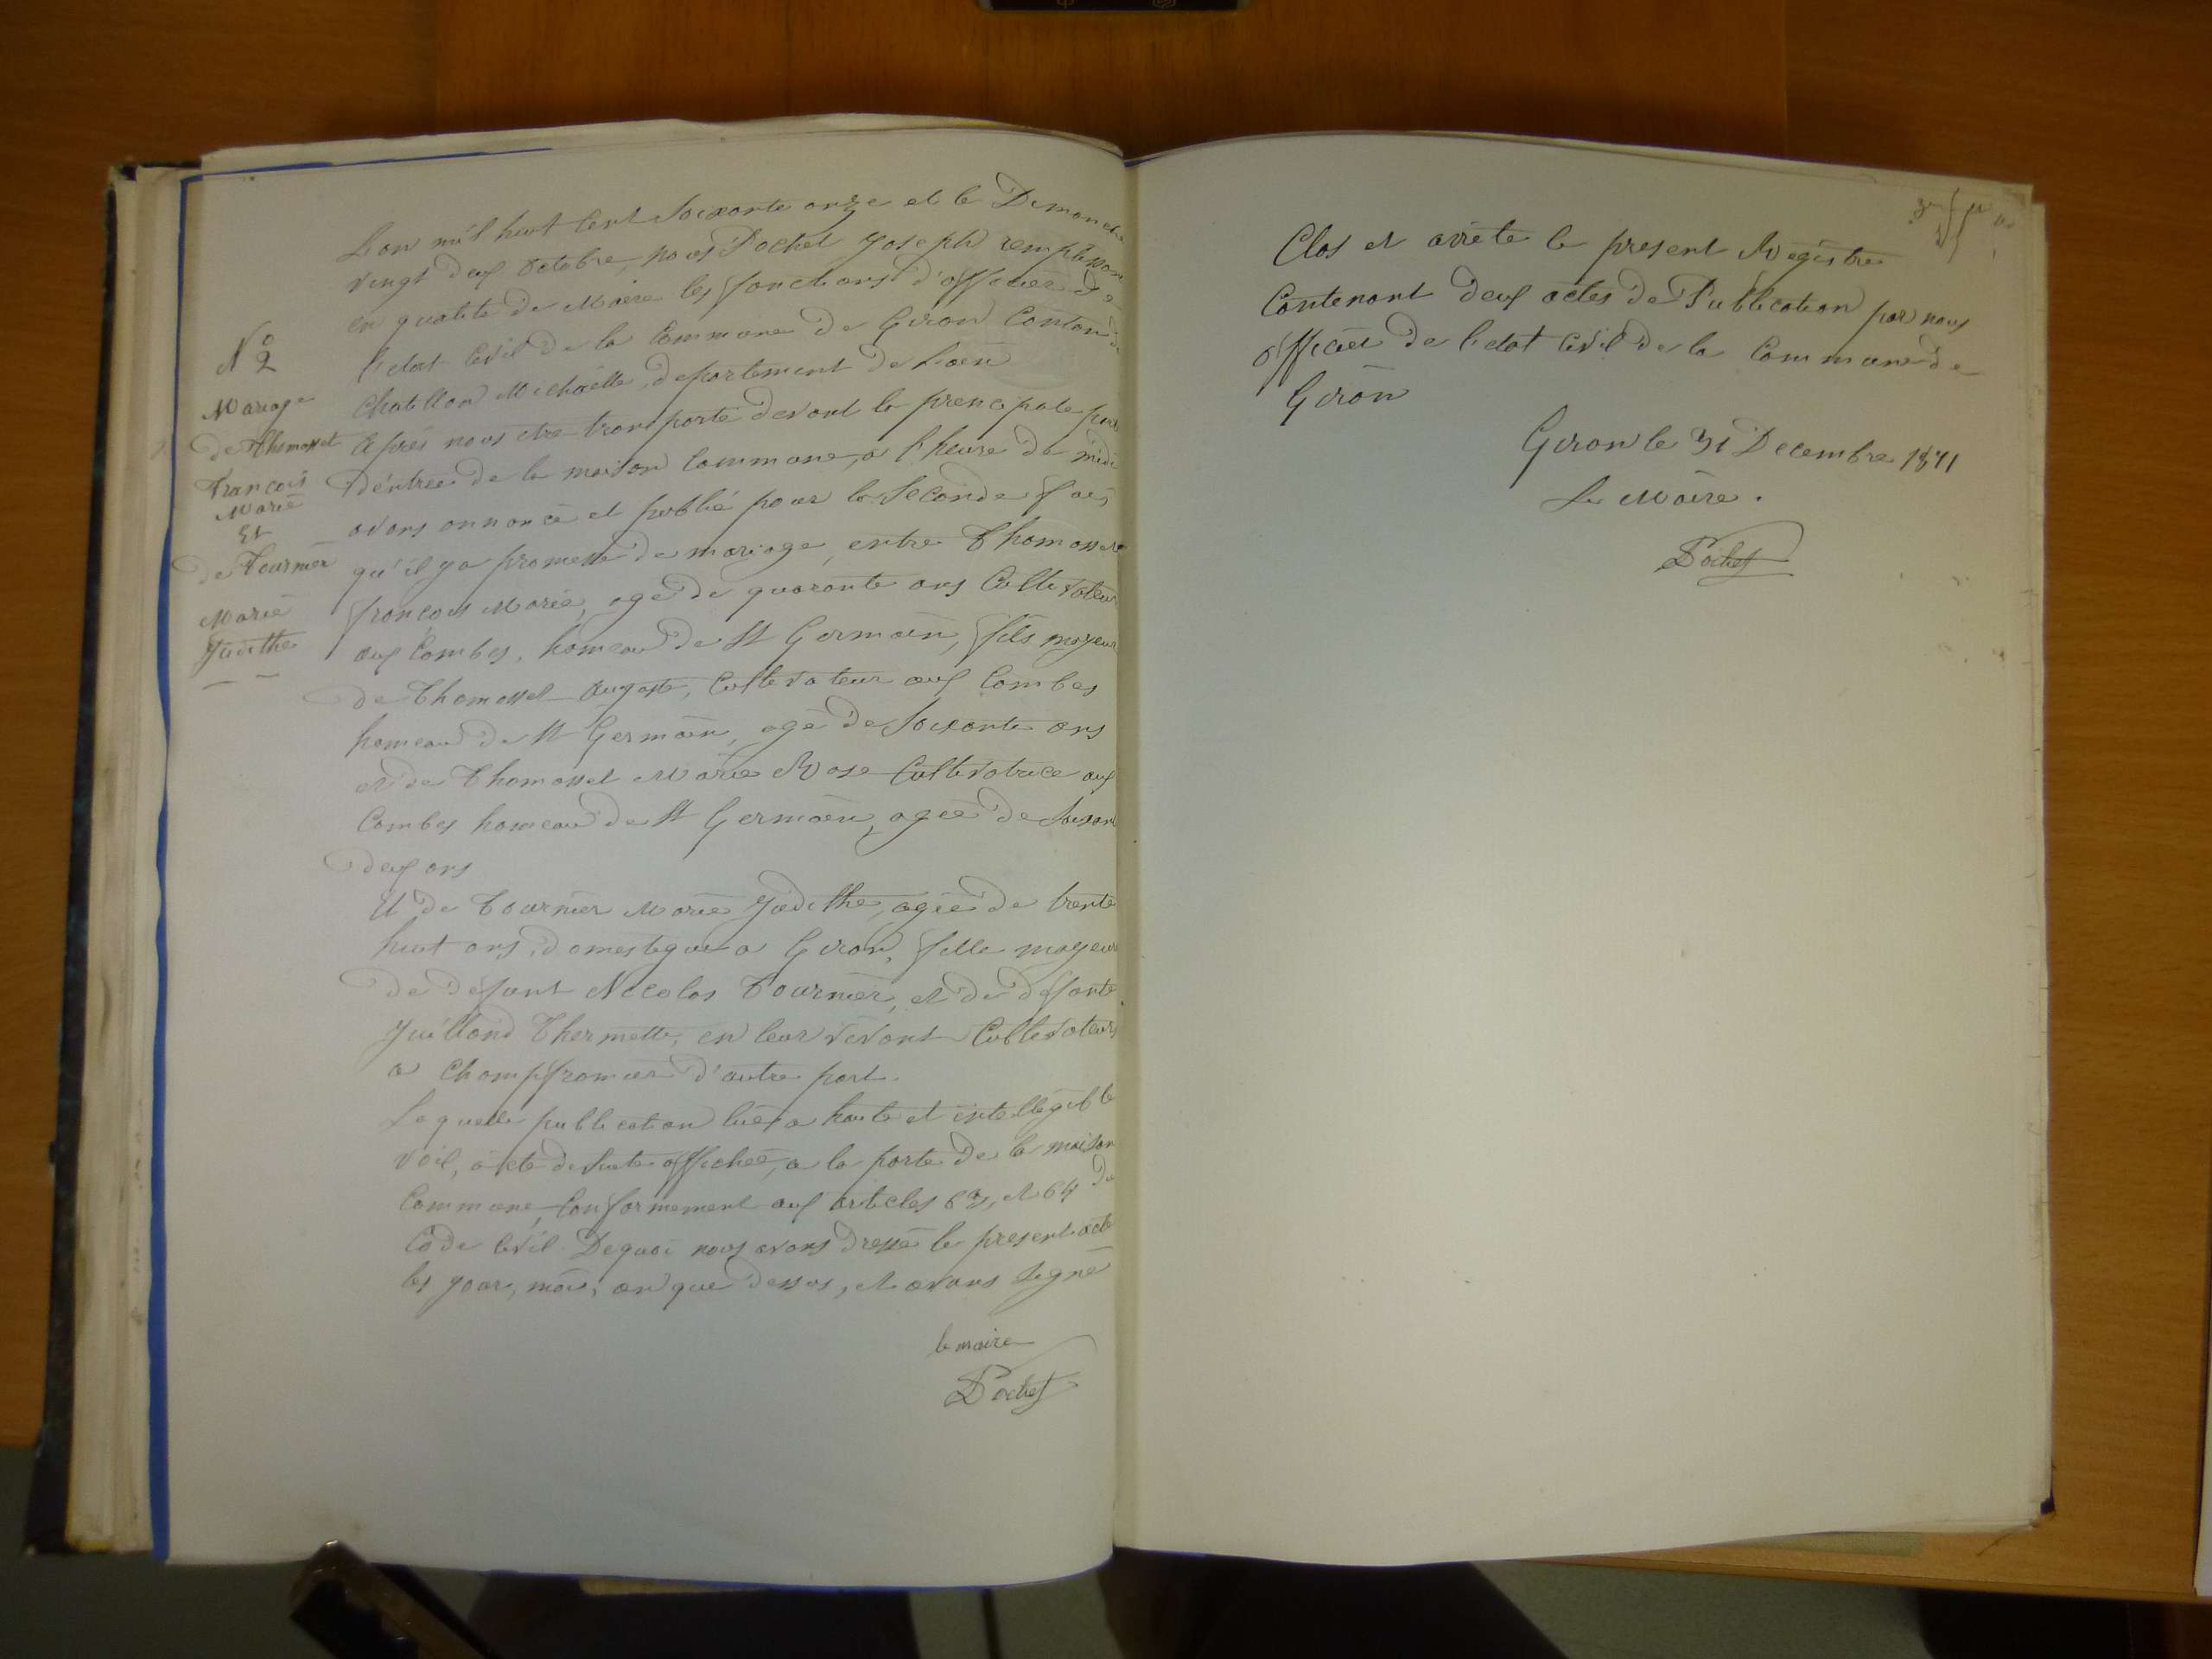 N° 2
Mariage
de Thomasset
François
Marie
Et
de Tournier
Marie
Judithe
L'an mil huit cent soixante onze et le Dimanche
vingt deux octobre, nous Pochet Joseph remplissan
en qualité de Maire les fonctions d'officier de
l'etat civil de la Commune de Giron Canton de
Chatillon Michaille, departement de L'ain
Après nous etre transporté devant la principale porte
d'entrée de la maison commune, a l'heure de midi
avons annoncé et publié pour la seconde fois,
qu'il y a promesse de mariage, entre Thomasset
françois Marie, agé de quarante ans Cultivateur
aux Combes, hameau de St Germain, fils majeur
de Thomasset Auguste, Cultivateur aux Combes
hameau de St Germain, agé de soixante ans
et de Thomasset Marie Rose Cultivatrice aux
Combes hameau de St Germain, agée de soixant
deux ans
Et de Tournier Marie Judithe, agée de trente
huit ans, domestique a Giron, fille majeur
de defunt Nicolas Tournier, et de defunte
Juilland Thermette, en leur vivant Cultivateurs
a Champfromier d'autre part.
Laquelle publication lue a haute et intelligible
voix, a été de suite affichée, a la porte de la maison
Commune, Conformement aux articles 63, et 64 du
Code Civil. De quoi nous avons dressé le present acte
les jour, mois, an que dessus, et avons signé
le maire
Pochet
Clos et arrété le present Registre
Contenant deux actes de Publication par nous
officier de l'etat civil de la Commune de
Giron
Giron le 31 Decembre 1871
Le Maire.
Pochet